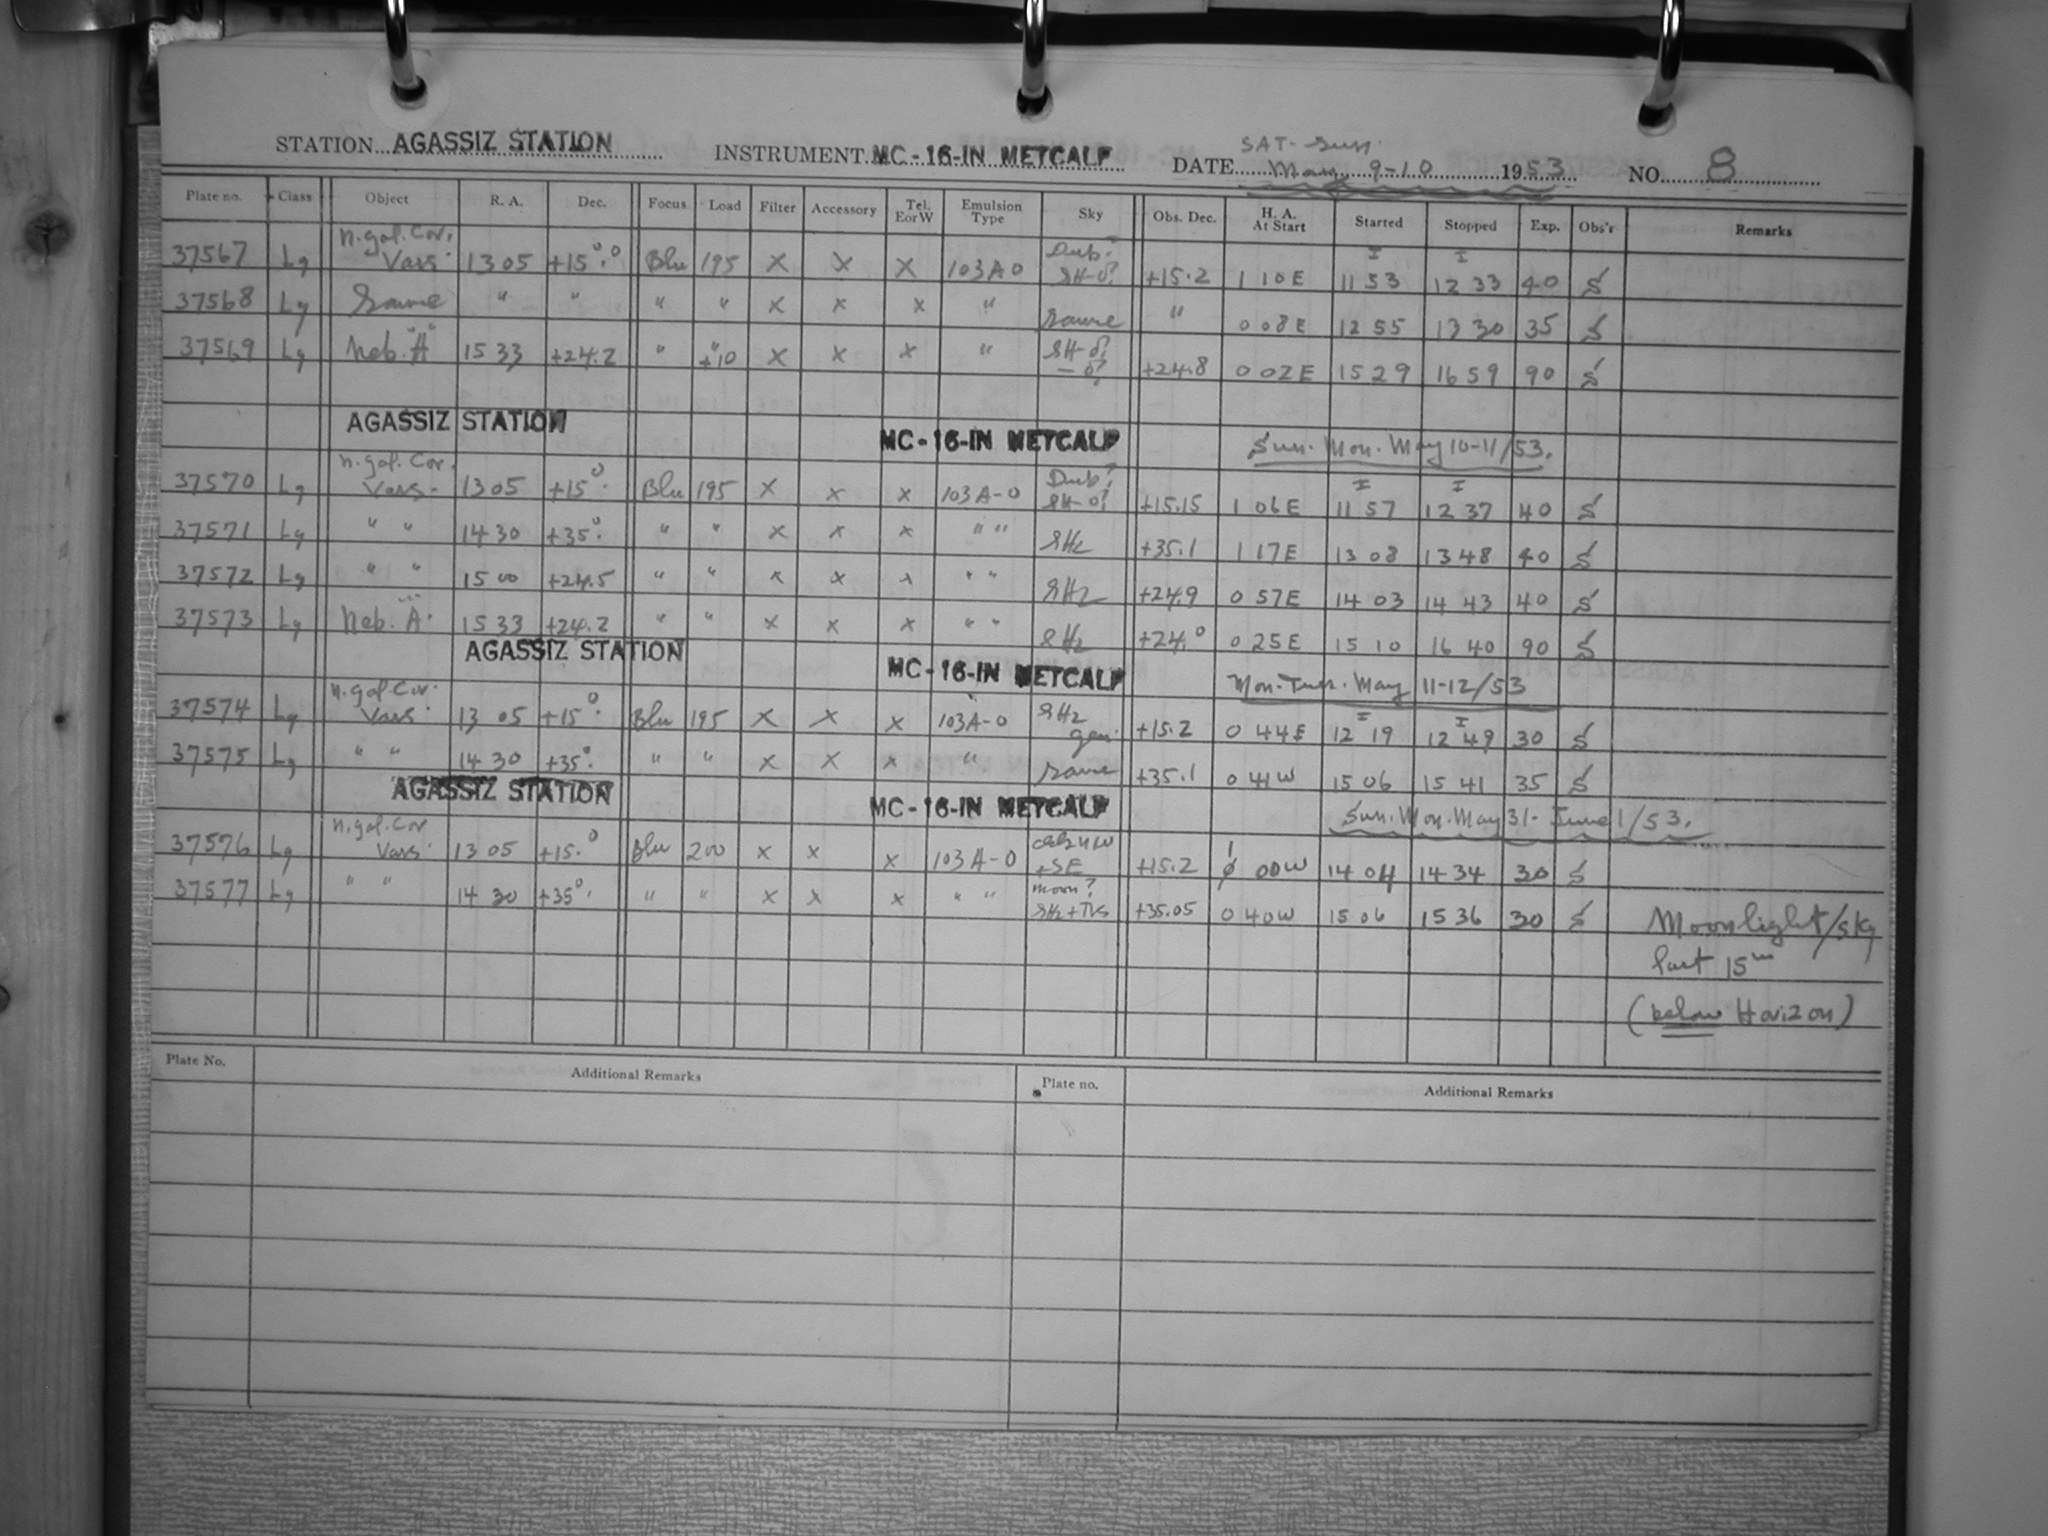 STATION AGASSIZ STATION INSTRUMENT MC-16-IN METCALF DATE SAT-Sun. May 9-10 1953 NO. 8
Plate no. Class Object R. A. Dec. Focus Load Filter Accessory Tel. E or W Emulsion Type Sky Obs. Dec. H. A. At Start Started Stopped Exp. Obs'r Remarks
n. gal. Cor.
37567 Lg Vars. 13 05 +15°.0 Blu 195 X X X 103AO SH-δ? +15.2 1 10E 11 53 12 33 40 S
37568 Lg Same " " " " X X X " Same " 0 08E 12 55 13 30 35 S
37569 Lg Neb. "A" 15 33 +24.2 " " +10 X X X " SH-δ? +24.8 0 02E 15 29 16 59 90 S
AGASSIZ STATION MC-16-IN METCALF Sun. Mon. May 10-11/53.
n. gal. Cor.
37570 Lg Vars. 13 05 +15°. Blu 195 X X X 103A-O SH-δ? +15.15 1 06E 11 57 12 37 40 S
37571 Lg " " 14 30 +35°. " " X X X " " SHz +35.1 1 17E 13 08 13 48 40 S
37572 Lg " " 15 00 +24.5 " " X X X " " SHz +24.9 0 57E 14 03 14 43 40 S
37573 Lg Neb. "A" 15 33 +24.2 " " X X X " " SHz +24.0 0 25E 15 10 16 40 90 S
AGASSIZ STATION MC-16-IN METCALF Mon. Tues. May 11-12/53
n. gal. Cor.
37574 Lg Vars. 13 05 +15°. Blu 195 X X X 103A-O SHz gen. +15.2 0 44E 12 19 12 49 30 S
37575 Lg " " 14 30 +35°. " " X X X " Same +35.1 0 41W 15 06 15 41 35 S
AGASSIZ STATION MC-16-IN METCALF Sun. Mon. May 31- June 1/53.
n. gal. Cor
37576 Lg Vars. 13 05 +15.0 Blu 200 X X X 103A-O +SE +15.2 1 00W 14 04 14 34 30 S
37577 Lg " " 14 30 +35°. " " X X X " " moon? SHz + +35.05 0 40W 15 06 15 36 30 S Moonlight/sky
last 15m
(below Horizon)
Plate No. Additional Remarks Plate no. Additional Remarks